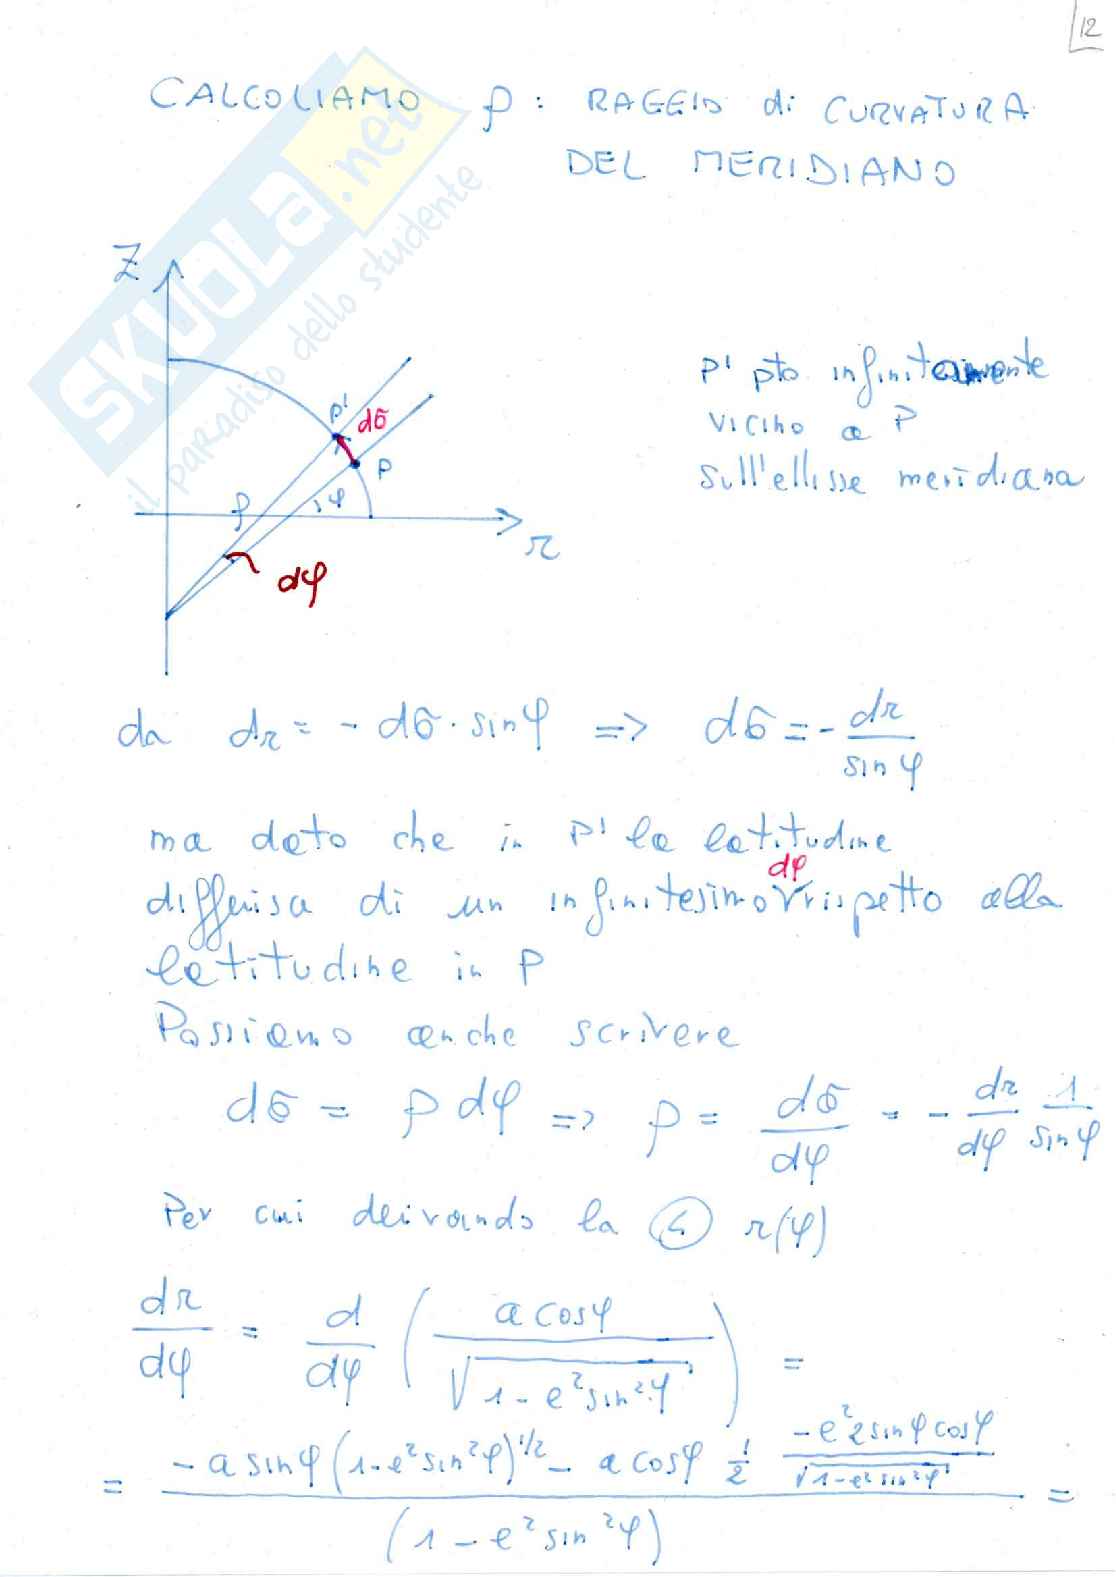 12
CALCOLIAMO ρ : RAGGIO di CURVATURA
DEL MERIDIANO
SKUOLA.net
il paradiso dello studente
Z
P' dσ
P
ρ φ
r
dφ
P' pto infinitamente
vicino a P
sull'ellisse meridiana
da dr = - dσ · sinφ => dσ = - dr/sinφ
ma dato che in P' la latitudine
dφ
differisa di un infinitesimo V rispetto alla
latitudine in P
Possiamo anche scrivere
dσ = ρ dφ => ρ = dσ/dφ = - dr/dφ 1/sinφ
Per cui deivando la (4) r(φ)
dr/dφ = d/dφ ( a cosφ / √(1 - e² sin²φ) ) =
= [ - a sinφ (1 - e² sin²φ)^1/2 - a cosφ 1/2 (- e² 2 sinφ cosφ / √(1 - e² sin²φ)) ] / (1 - e² sin²φ) =